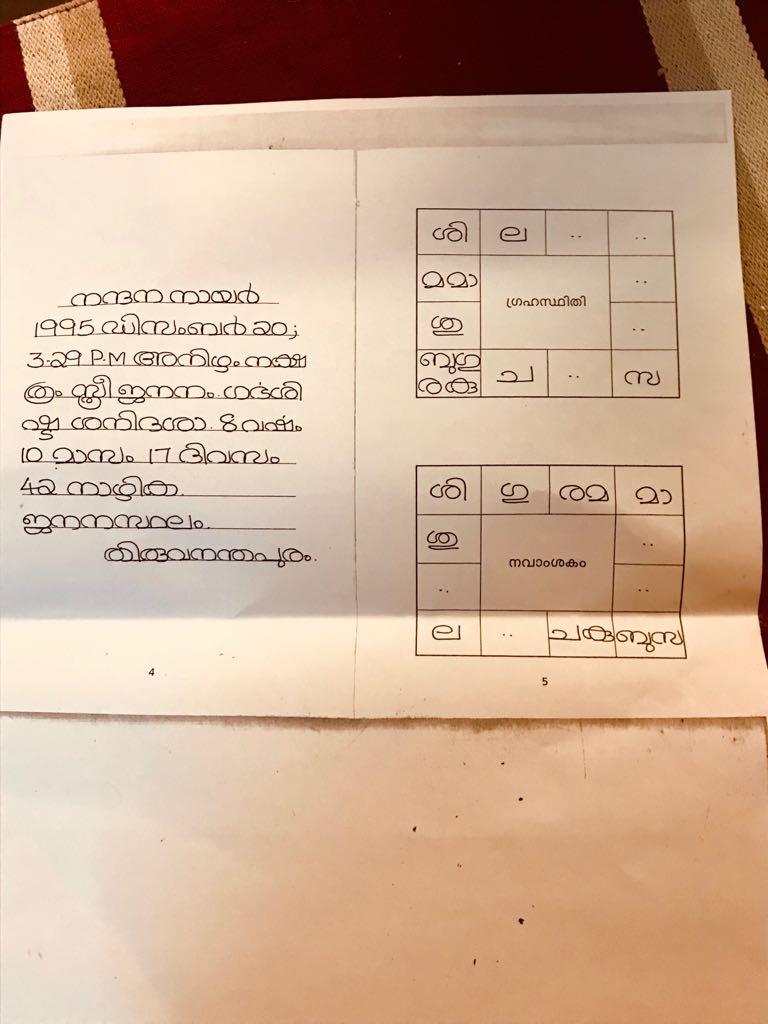 നന്ദന നായർ
1995 ഡിസംബർ 20;
3-29 P.M അനിഴം നക്ഷ
ത്രം സ്ത്രീ ജനനം. ഗർഭശി
ഷ്ട ശനിദശാ. 8 വർഷം
10 മാസം 17 ദിവസം
42 നാഴിക
ജനനസ്ഥലം.
തിരുവനന്തപുരം.
4
ശി ല .. ..
മമാ ഗ്രഹസ്ഥിതി ..
ശു ..
ബുഗു ച .. സ
രകു
ശി ഗു രമ മാ
ശു നവാംശകം ..
.. ..
ല .. ചകു ബുസ
5